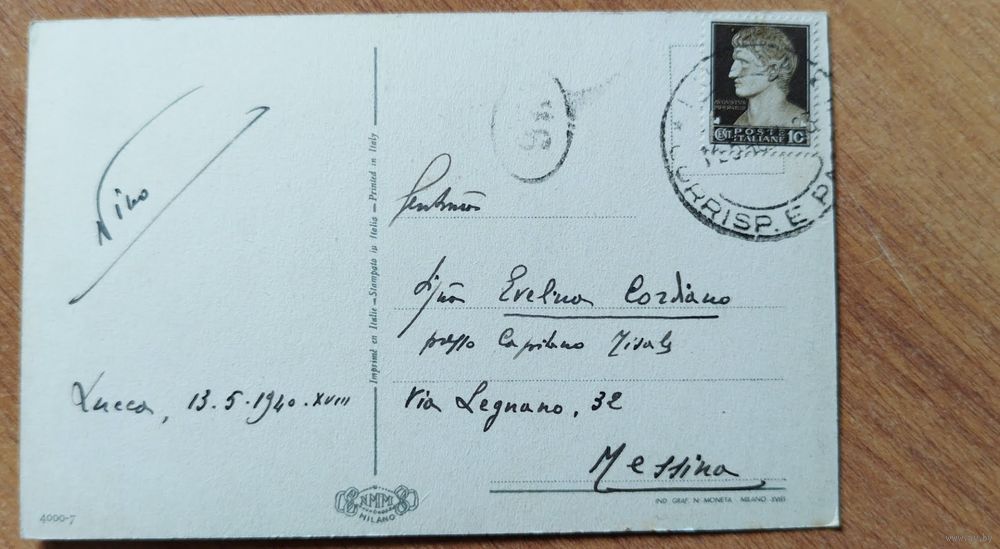 Nino
Lucca, 13.5.1940.XVIII
4000-7
Imprimé en Italie – Stampato in Italia – Printed in Italy
NMM
MILANO
AUGUSTUS
CENT. POSTE ITALIANE 10
CORRISP. E PA
Evelina Cordiano
presso Capitano
Via Legnano, 32
Messina
IND. GRAF. N. MONETA MILANO XVIII
www.ay.by